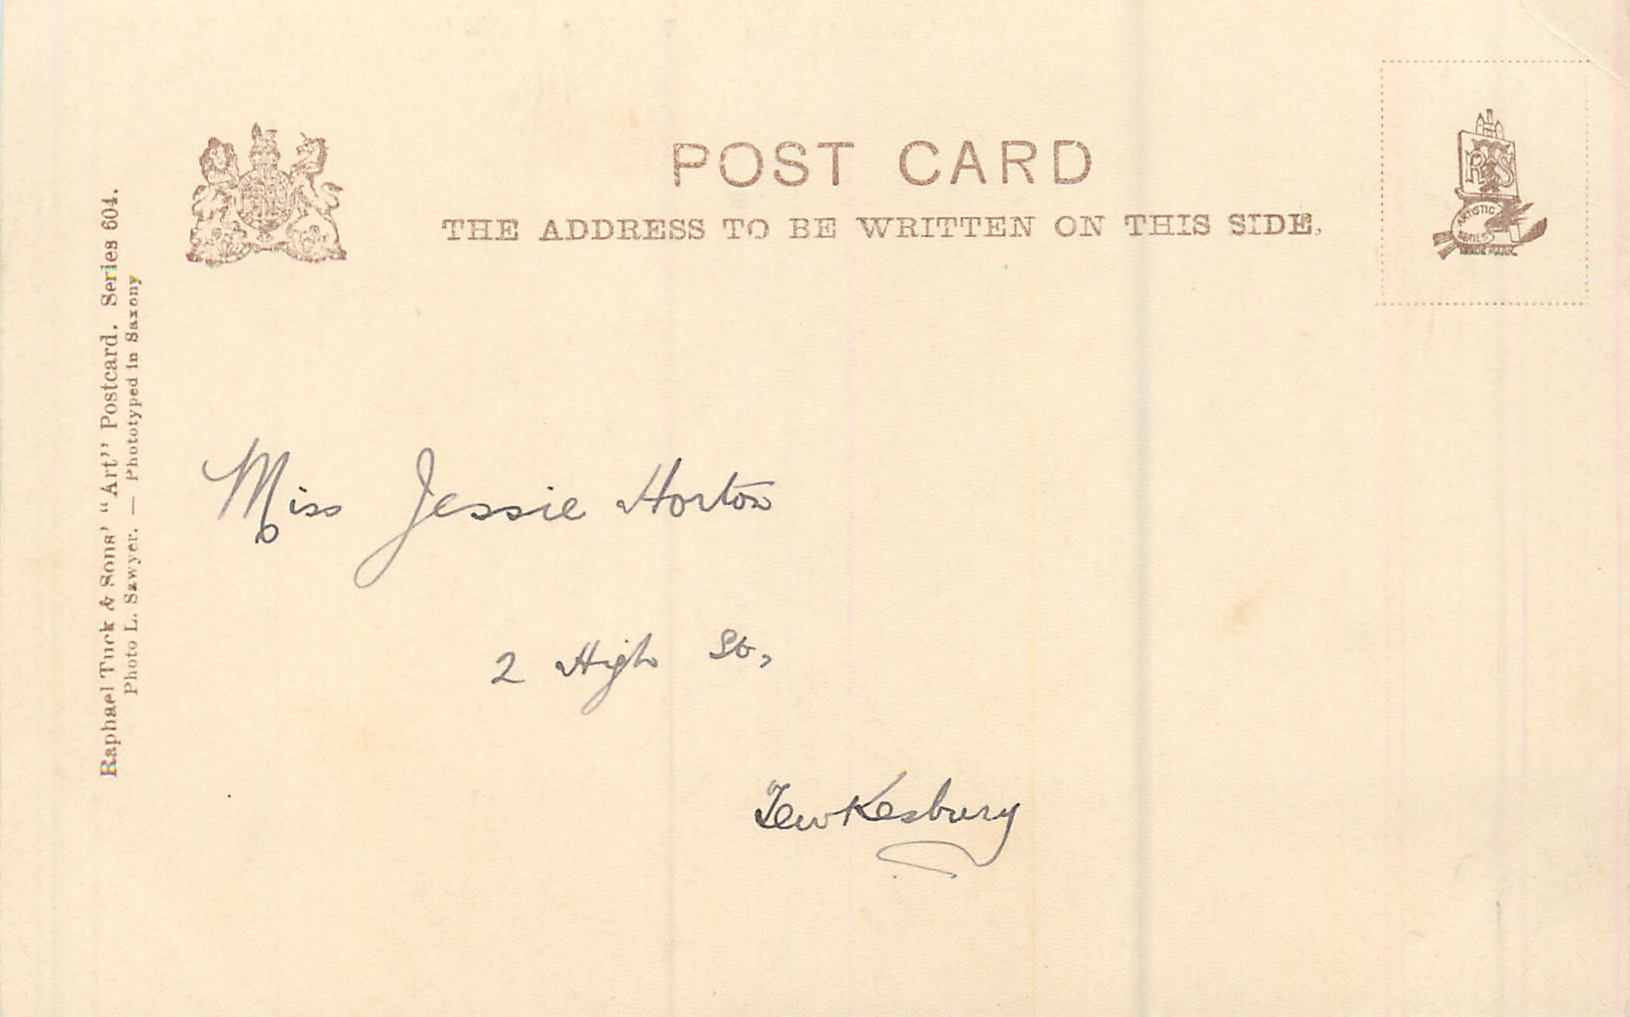 POST CARD
THE ADDRESS TO BE WRITTEN ON THIS SIDE.
RTS
ARTISTIC
SERIES
TRADE MARK
Raphael Tuck & Sons' "Art" Postcard. Series 604.
Photo L. Sawyer. — Phototyped in Saxony
Miss Jessie Horton
2 High St,
Tewkesbury